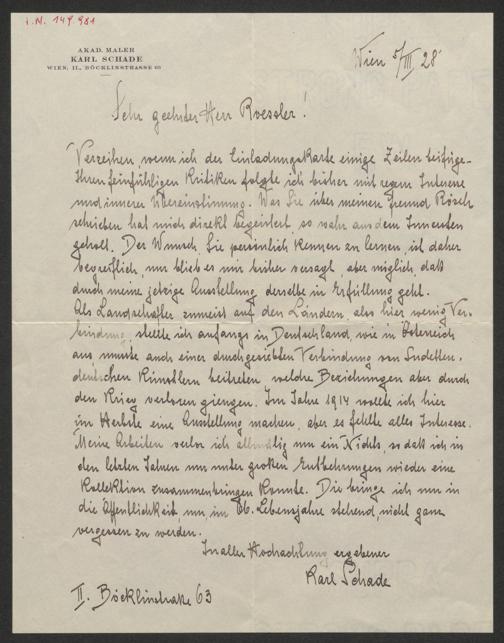 I.N. 149.981
AKAD. MALER
KARL SCHADE
WIEN, II., BÖCKLINSTRASSE 63
Wien 5/III 28
Sehr geehrter Herr Roessler!
Verzeihen, wenn ich der Einladungskarte einige Zeilen beifüge.
Ihren feinfühligen Kritiken folgte ich bisher mit regem Interesse
und innerer Übereinstimmung. Was Sie über meinen Freund Rösch
schrieben hat mich direkt begeistert, so wahr aus dem Innersten
geholt. Der Wunsch, Sie persönlich kennen zu lernen, ist daher
begreiflich, nur blieb es mir bisher versagt, aber möglich, daß
durch meine jetzige Ausstellung derselbe in Erfüllung geht.
Als Landschafter zumeist auf den Ländern, also hier wenig Ver-
bindung, stellte ich anfangs in Deutschland, wie in Österreich
aus mußte auch einer Verbindung von Sudetten-
deutschen Künstlern beitreten, welche Beziehungen aber durch
den Krieg verloren giengen. Im Jahre 1914 wollte ich hier
im Herbste eine Ausstellung machen, aber es fehlte alles Interesse.
Meine Arbeiten verlor ich allmälig um ein Nichts, so daß ich in
den letzten Jahren nur unter großen Entbehrungen wieder eine
Kollektion zusammenbringen konnte. Die bringe ich nun in
die Öffentlichkeit, um, im 66. Lebensjahre stehend, nicht ganz
vergessen zu werden.
In aller Hochachtung ergebener
Karl Schade
II. Böcklinstraße 63